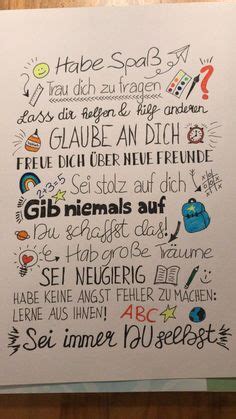 Habe Spaß
Trau dich zu fragen ?
Lass dir helfen & hilf anderen
GLAUBE AN DICH
FREUE DICH ÜBER NEUE FREUNDE
2+3=5 Sei stolz auf dich
Gib niemals auf
Du schaffst das!
Hab große Träume
SEI NEUGIERIG
HABE KEINE ANGST FEHLER ZU MACHEN:
LERNE AUS IHNEN! ABC
Sei immer DU selbst